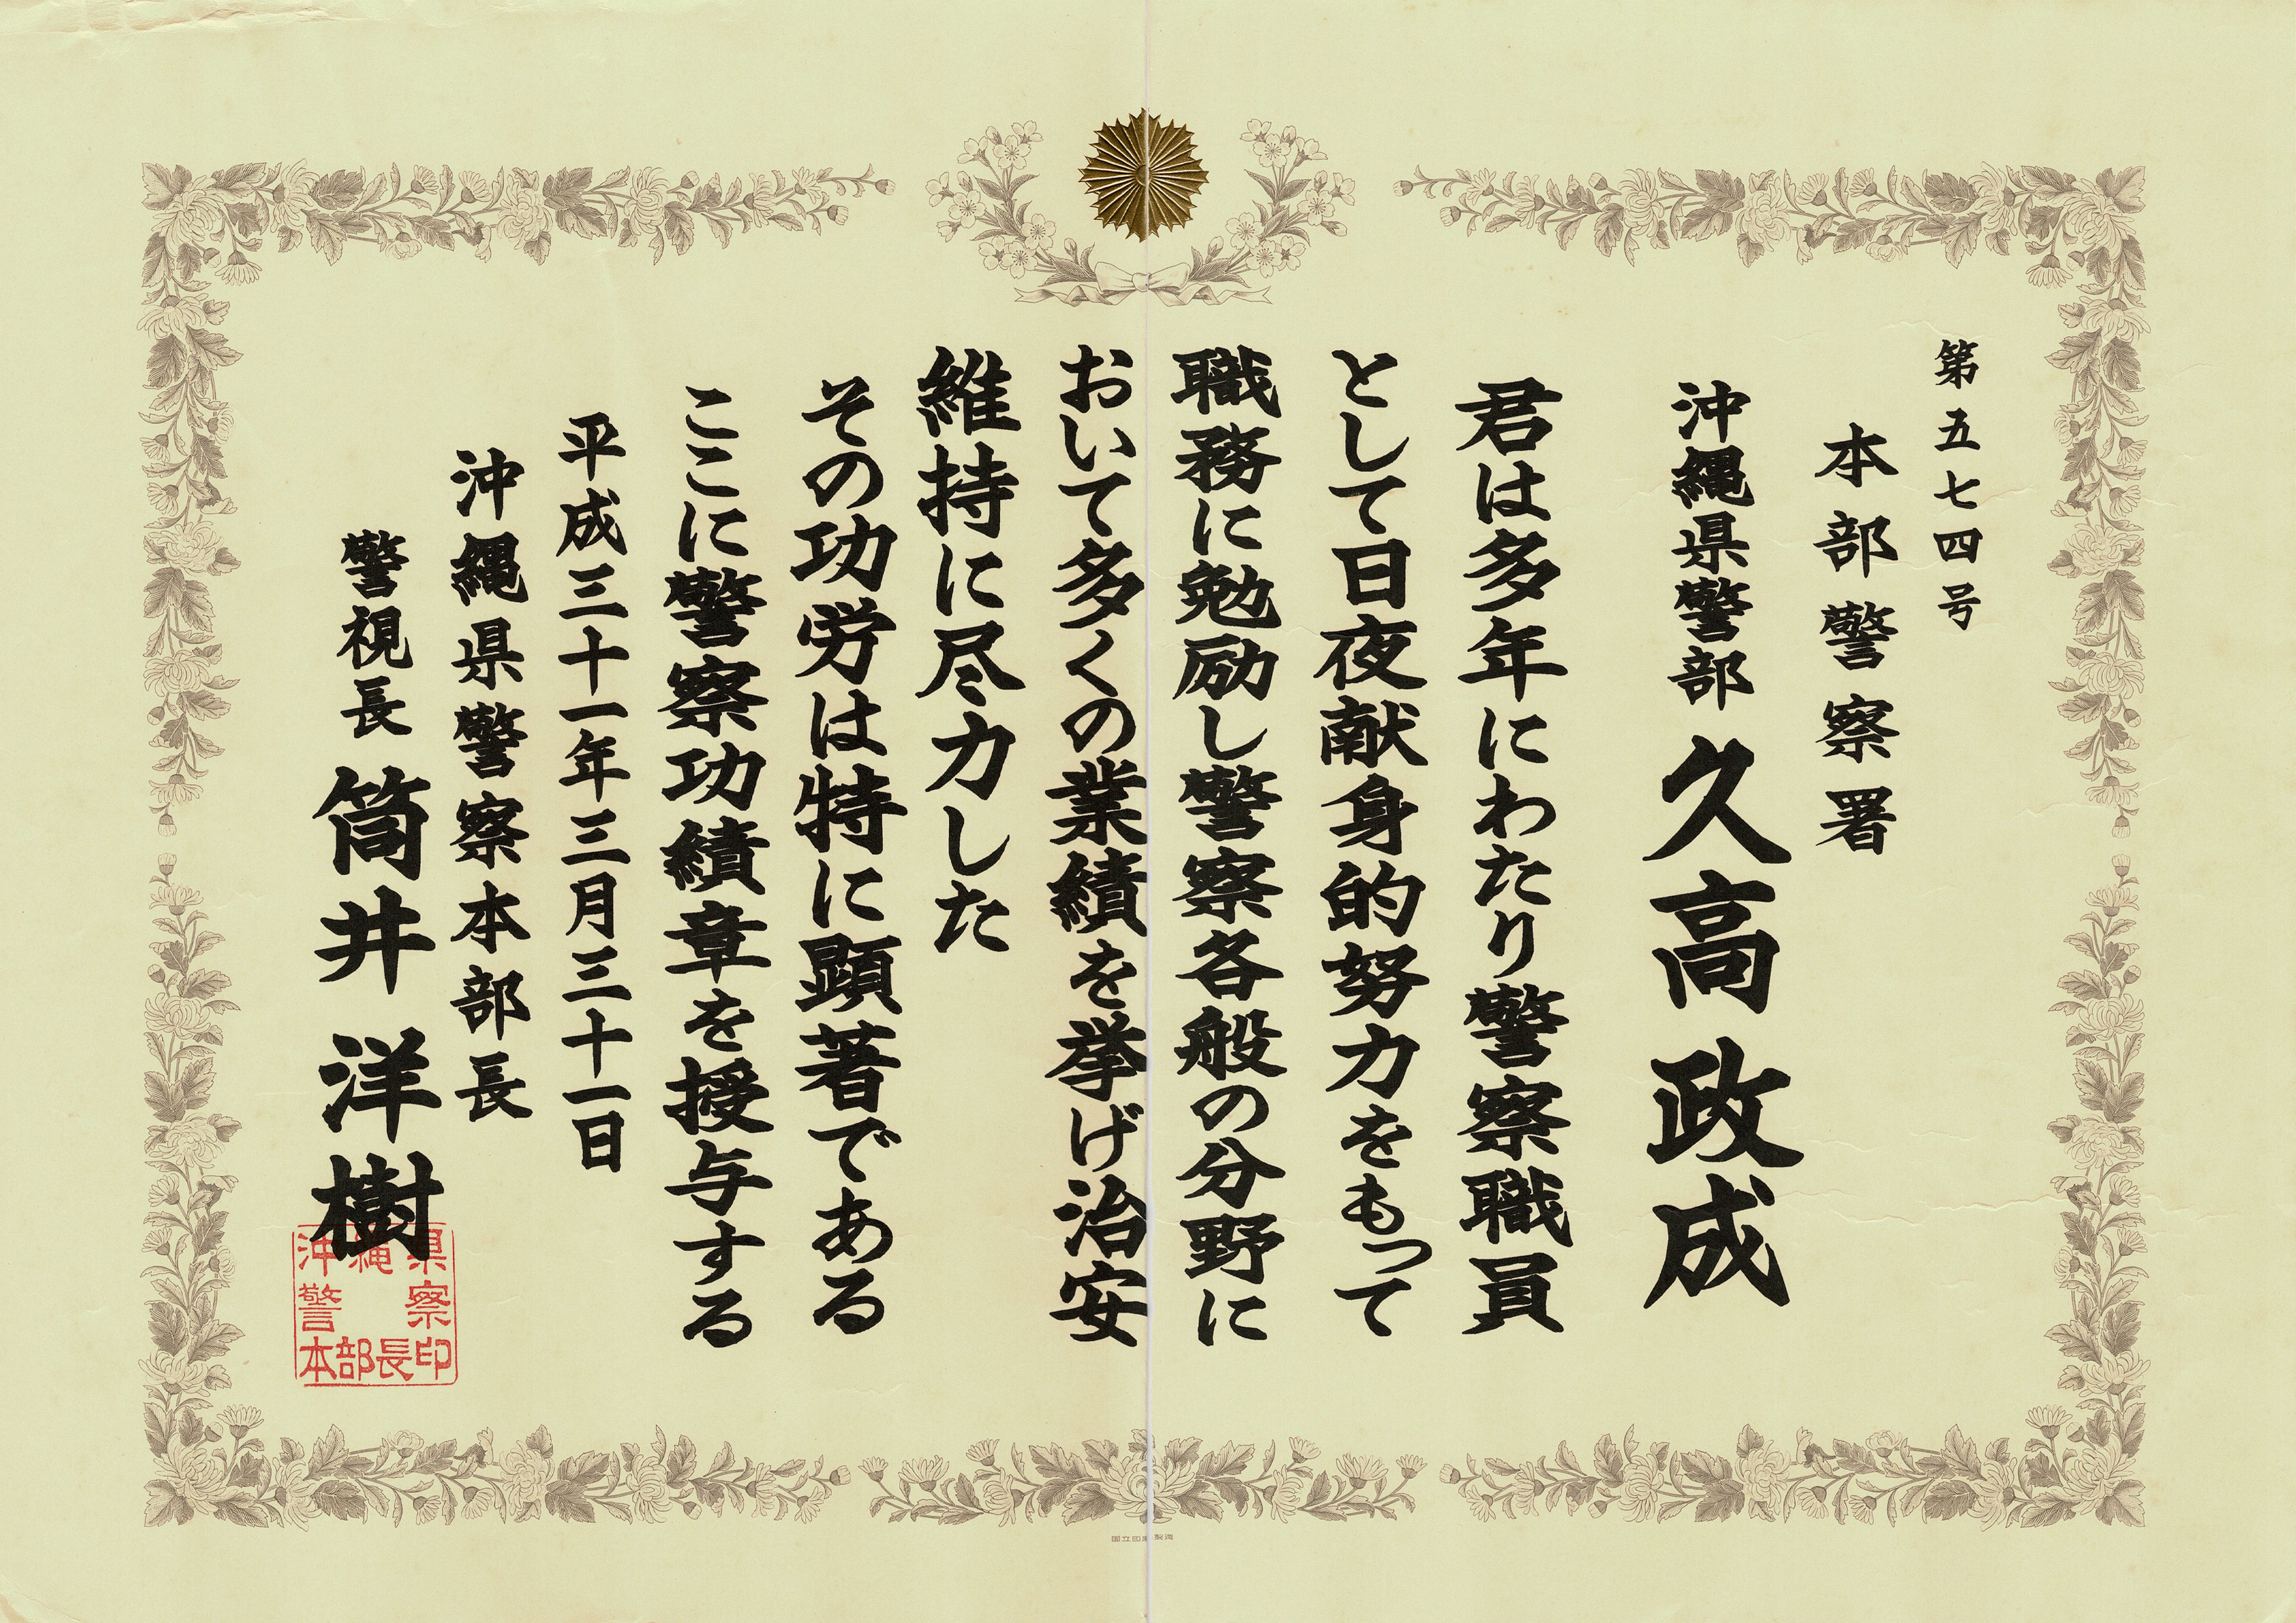 第五七四号
本部警察署
沖縄県警部 久高政成
君は多年にわたり警察職員
として日夜献身的努力をもって
職務に勉励し警察各般の分野に
おいて多くの業績を挙げ治安
維持に尽力した
その功労は特に顕著である
ここに警察功績章を授与する
平成三十一年三月三十一日
沖縄県警察本部長
警視長 筒井洋樹
沖縄県
警察
本部長印
国立印刷製造